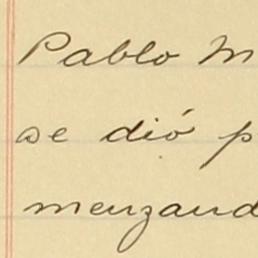 Pablo M
se dió p
menzand